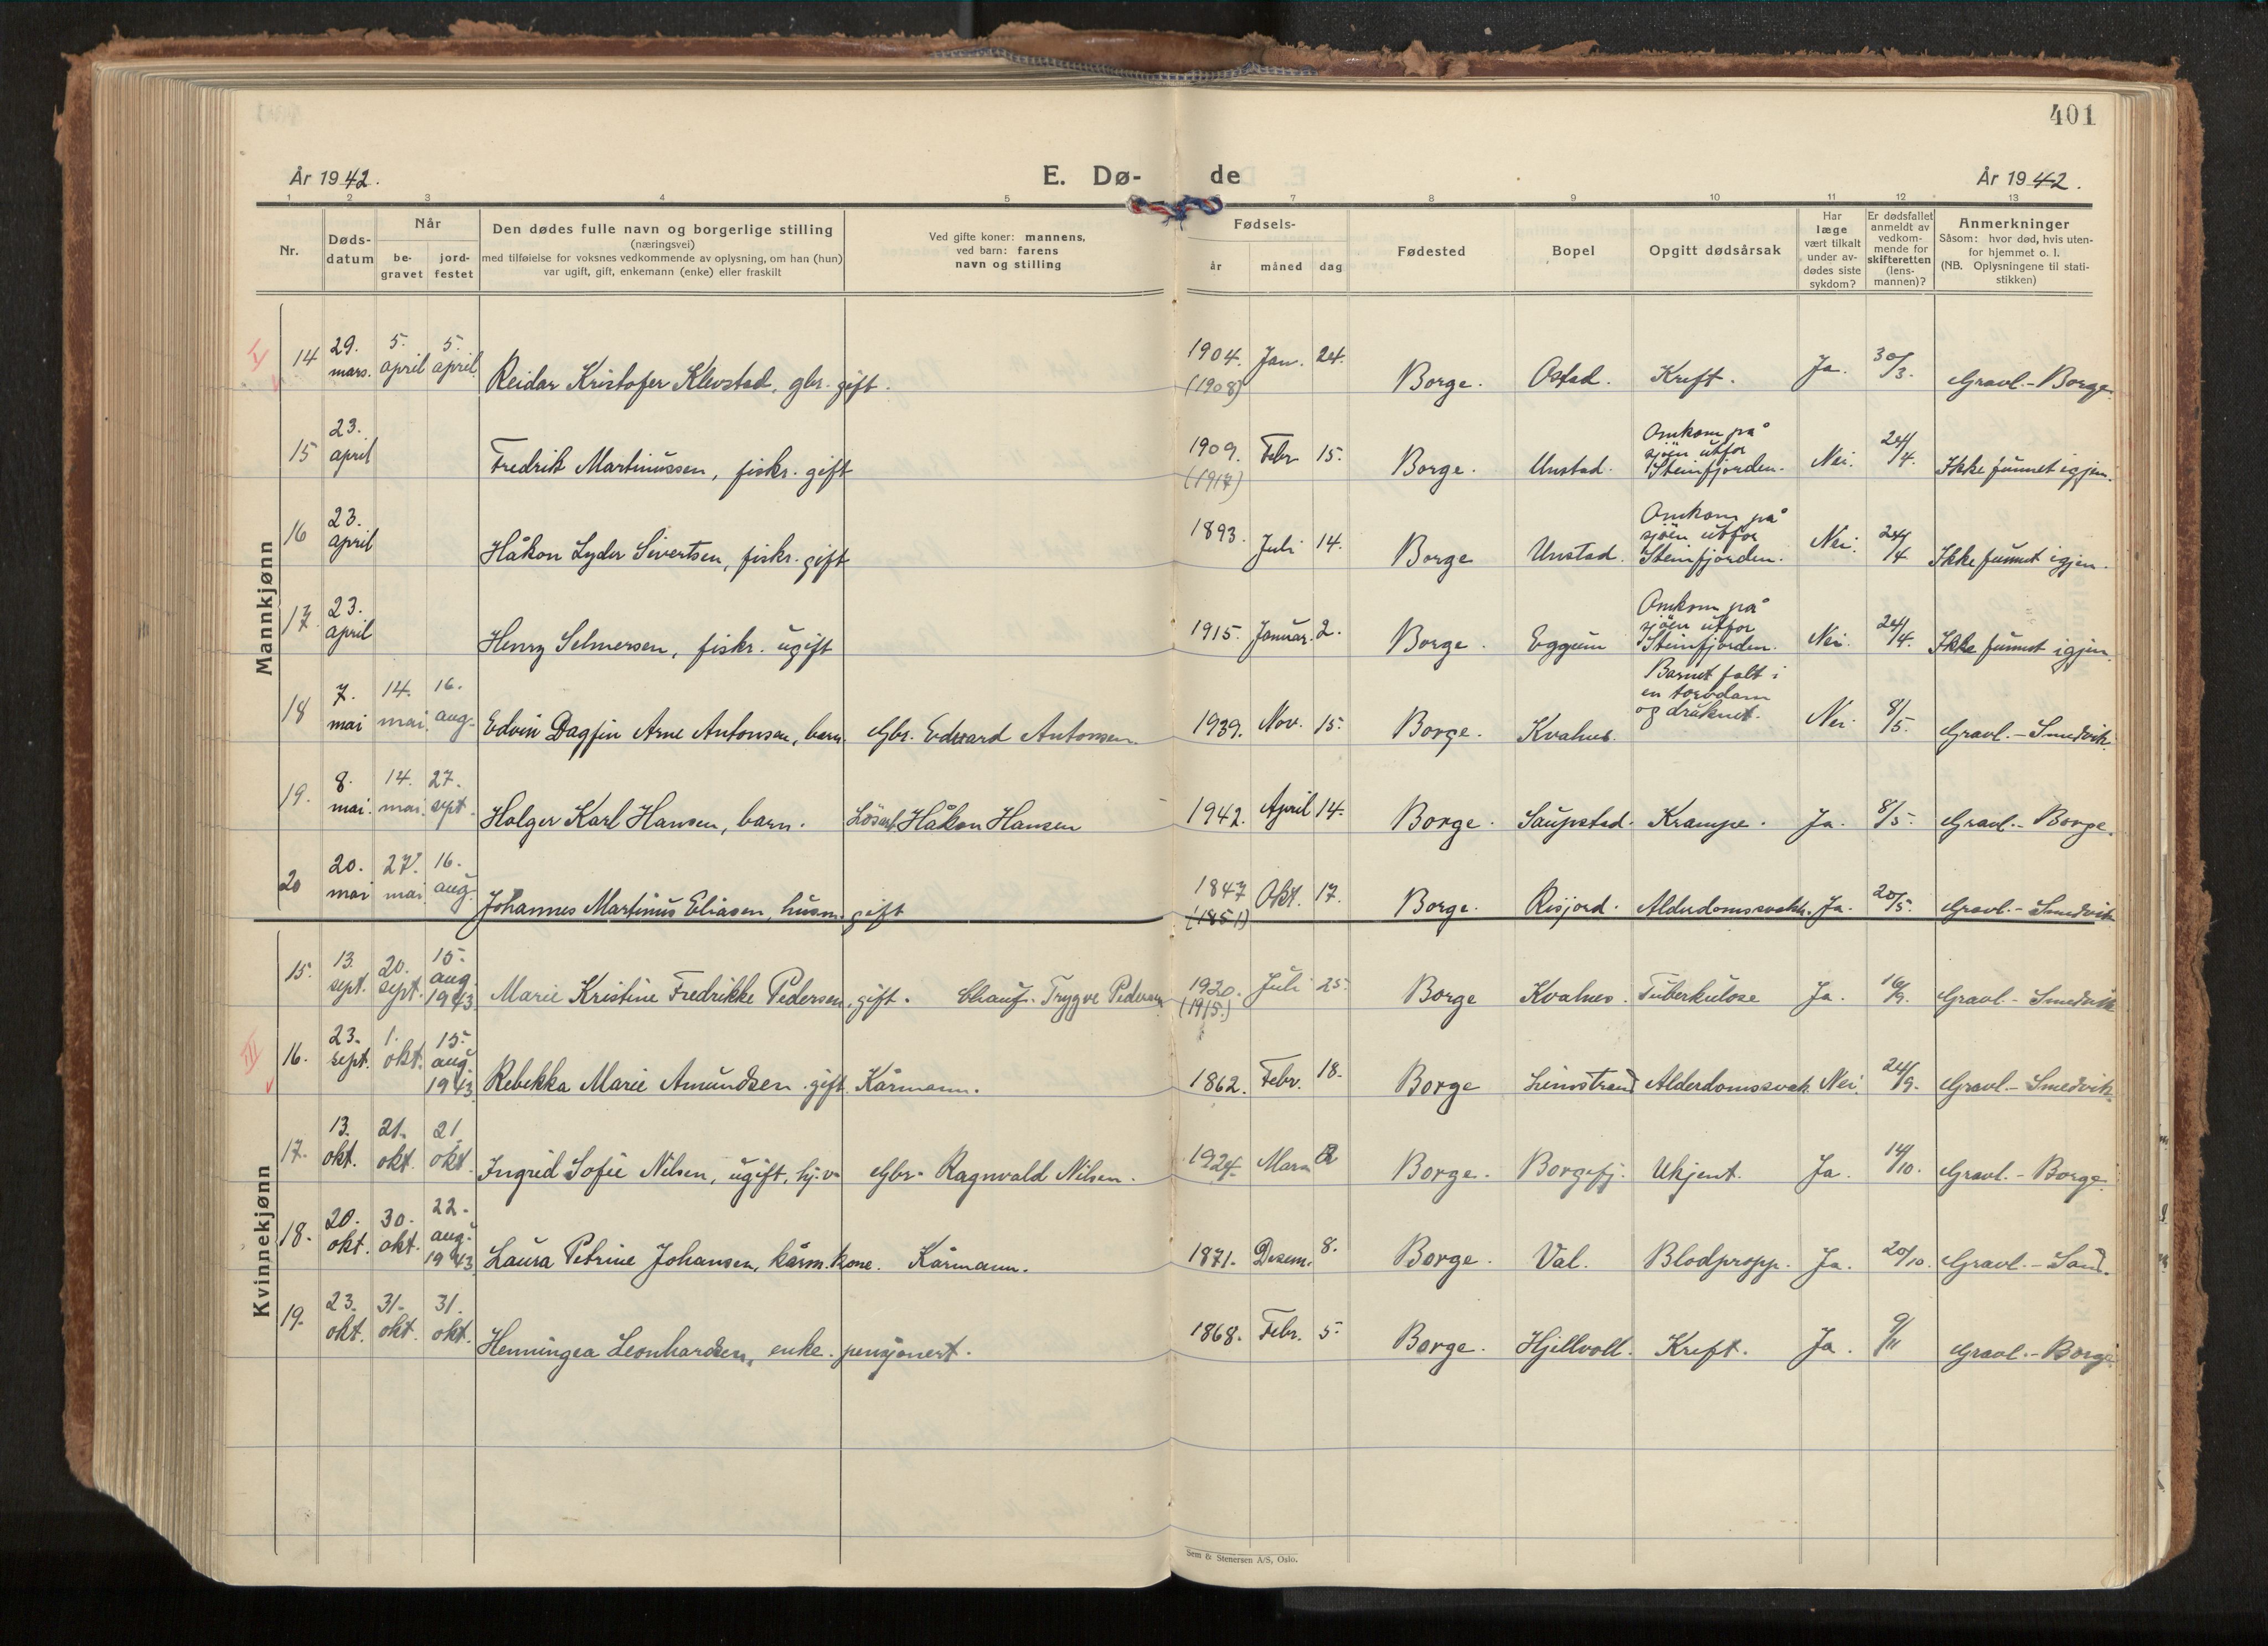 401
År 1942.
E. Dø- de
År 1942.
1 2 3 4 5 7 8 9 10 11 12 13
Nr.
Døds-
datum
Når
be-
gravet
jord-
festet
Den dødes fulle navn og borgerlige stilling
(næringsvei)
med tilføielse for voksnes vedkommende av oplysning, om han (hun)
var ugift, gift, enkemann (enke) eller fraskilt
Ved gifte koner: mannens,
ved barn: farens
navn og stilling
Fødsels-
år måned dag
Fødested
Bopel
Opgitt dødsårsak
Har
læge
vært tilkalt
under av-
dødes siste
sykdom?
Er dødsfallet
anmeldt av
vedkom-
mende for
skifteretten
(lens-
mannen)?
Anmerkninger
Såsom: hvor død, hvis uten-
for hjemmet o. l.
(NB. Oplysningene til stati-
stikken)
Mannkjønn
14 29. mars. 5. april 5. april Reidar Kristofer Klevstad, gbr. gift. 1904. (1908) Jan. 24. Borge. Ostad. Kreft. Ja. 30/3. Gravl. - Borge.
15 23. april Fredrik Martinussen, fiskr. gift 1909. (1917) Febr 15. Borge. Unstad. Omkom på
sjöen utfor
Steinfjorden. Nei. 24/4. Ikke funnet igjen.
16 23. april Håkon Lyder Sivertsen, fiskr. gift 1893. Juli 14. Borge Unstad. Omkom på
sjöen utfor
Steinfjorden. Nei. 24/4 Ikke funnet igjen.
17. 23. april Henry Selmersen, fiskr. ugift 1915. Januar. 2. Borge. Eggum Omkom på
sjöen utfor
Steinfjorden. Nei. 24/4. Ikke funnet igjen.
18 7. mai 14. mai. 16. aug. Edvin Dagfin Arne Antonsen, barn. Gbr. Edvard Antonsen. 1939. Nov. 15. Borge. Kvalnes. Barnet falt i
en torvdam
og druknet. Nei. 8/5. Gravl. - Smedvik.
19. 8. mai. 14. mai. 27. sept. Holger Karl Hansen, barn. Lösarb. Håkon Hansen 1942. April 14. Borge. Saupstad. Krampe. Ja. 8/5. Gravl. - Borge.
20 20. mai 27. mai 16. aug. Johannes Martinus Eliasen, husm. gift 1847 (1851) Okt. 17. Borge. Risjord. Alderdomssvakh. Ja. 20/5. Gravl. - Smedvik
Kvinnekjønn
15. 13. sept. 20. sept. 15. aug. 1943. Marie Kristine Fredrikke Pedersen, gift. Chauf. Trygve Pedersen 1920. (1915.) Juli 25. Borge Kvalnes. Tuberkulose Ja. 16/9. Gravl. - Smedvik
16. 23. sept. 1. okt. 15. aug. 1943. Rebekka Marie Amundsen. gift. Kårmann. 1862. Febr. 18. Borge Limstrand Alderdomssvak. Nei. 24/9. Gravl. - Smedvik.
17. 13. okt. 21. okt. 21. okt. Ingrid Sofie Nilsen, ugift, hj.v. Gbr. Ragnvald Nilsen. 1924. Mars Borge. Borgefj. Ukjent. Ja. 14/10. Gravl. - Borge.
18. 20. okt. 30. okt. 22. aug. 1943. Laura Petrine Johansen, kårm. kone. Kårmann. 1871. Desem. 8. Borge. Val. Blodpropp. Ja. 20/10. Gravl. - Sand.
19. 23. okt. 31. okt. 31. okt. Henningea Leonhardsen, enke. pensjonert. 1868. Febr. 5. Borge. Hjellvoll. Kreft. Ja. 9/11 Gravl. - Borge.
Sem & Stenersen A/S, Oslo.